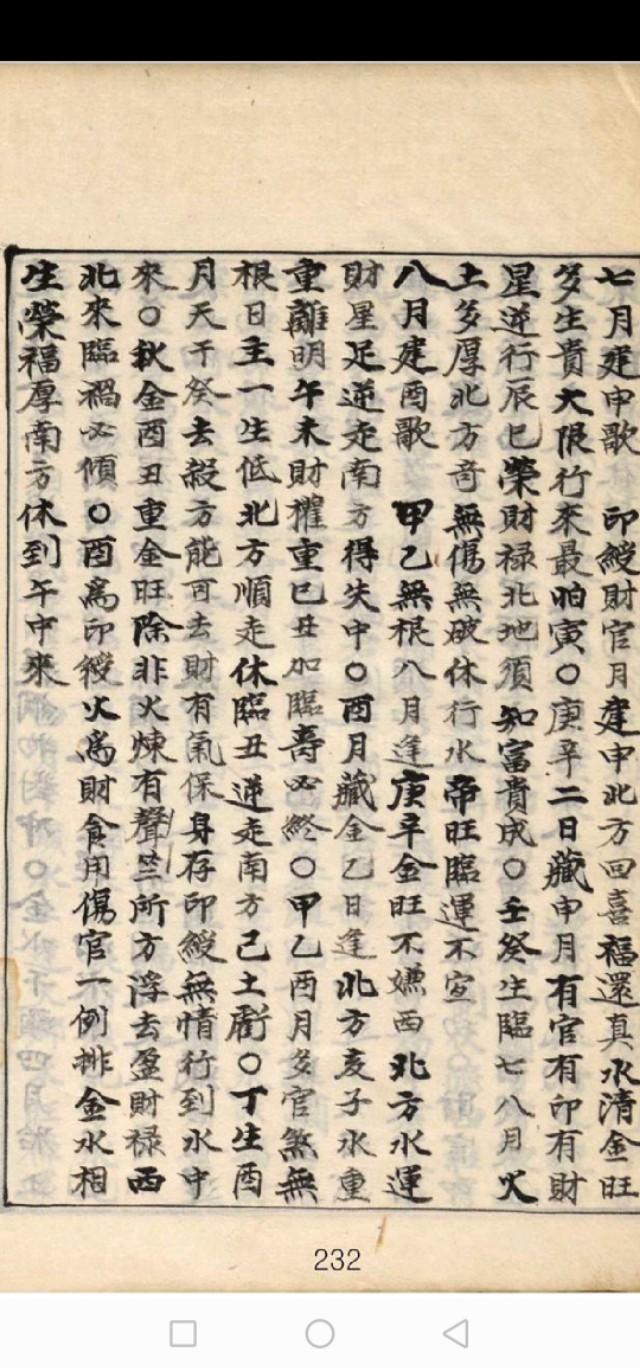 七月建申歌　印綬財官月建申北方回喜福還真水清金旺
多生貴大限行來最怕寅○庚辛二日藏申月有官有印有財
星逆行辰巳榮財祿北地須知富貴成○壬癸生臨七八月火
土多厚北方奇無傷無破休行水帝旺臨運不宜
八月建酉歌　甲乙無根八月逢庚辛金旺不嫌西北方水運
財星足逆走南方得失中○酉月藏金乙日逢北方亥子水重
重離明午未財權重巳丑加臨壽必終○甲乙酉月多官煞無
根日主一生低北方順走休臨丑逆走南方己土虧○丁生酉
月天干癸去殺方能可去財有氣保身存印綬無情行到水中
來○秋金酉丑重金旺除非火煉有聲竺所方浮去盈財祿西
北來臨禍必傾○酉為印綬火為財食用傷官一例排金水相
生榮福厚南方休到午中來
232